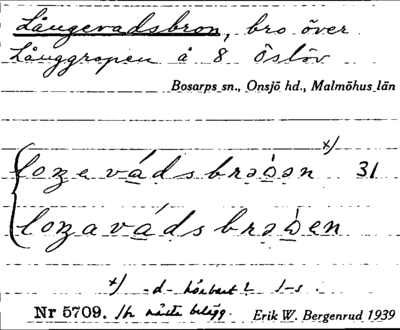 Långevadsbron, bro över
Långgropen å 8 Öslöv
Bosarps sn., Onsjö hd., Malmöhus län
x/
loŋavádsbrəɔən 31
loŋavádsbrəɔen
x/ -d- hörbart! l-s
Nr 5709. Erik W. Bergenrud 1939